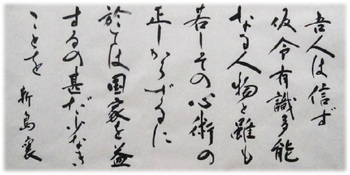 吾人は信ず
仮令有識多能
なる人物と雖も
若しその心術の
正しからざるに
於ては国家を益
するの甚だ少なき
ことを 新島襄